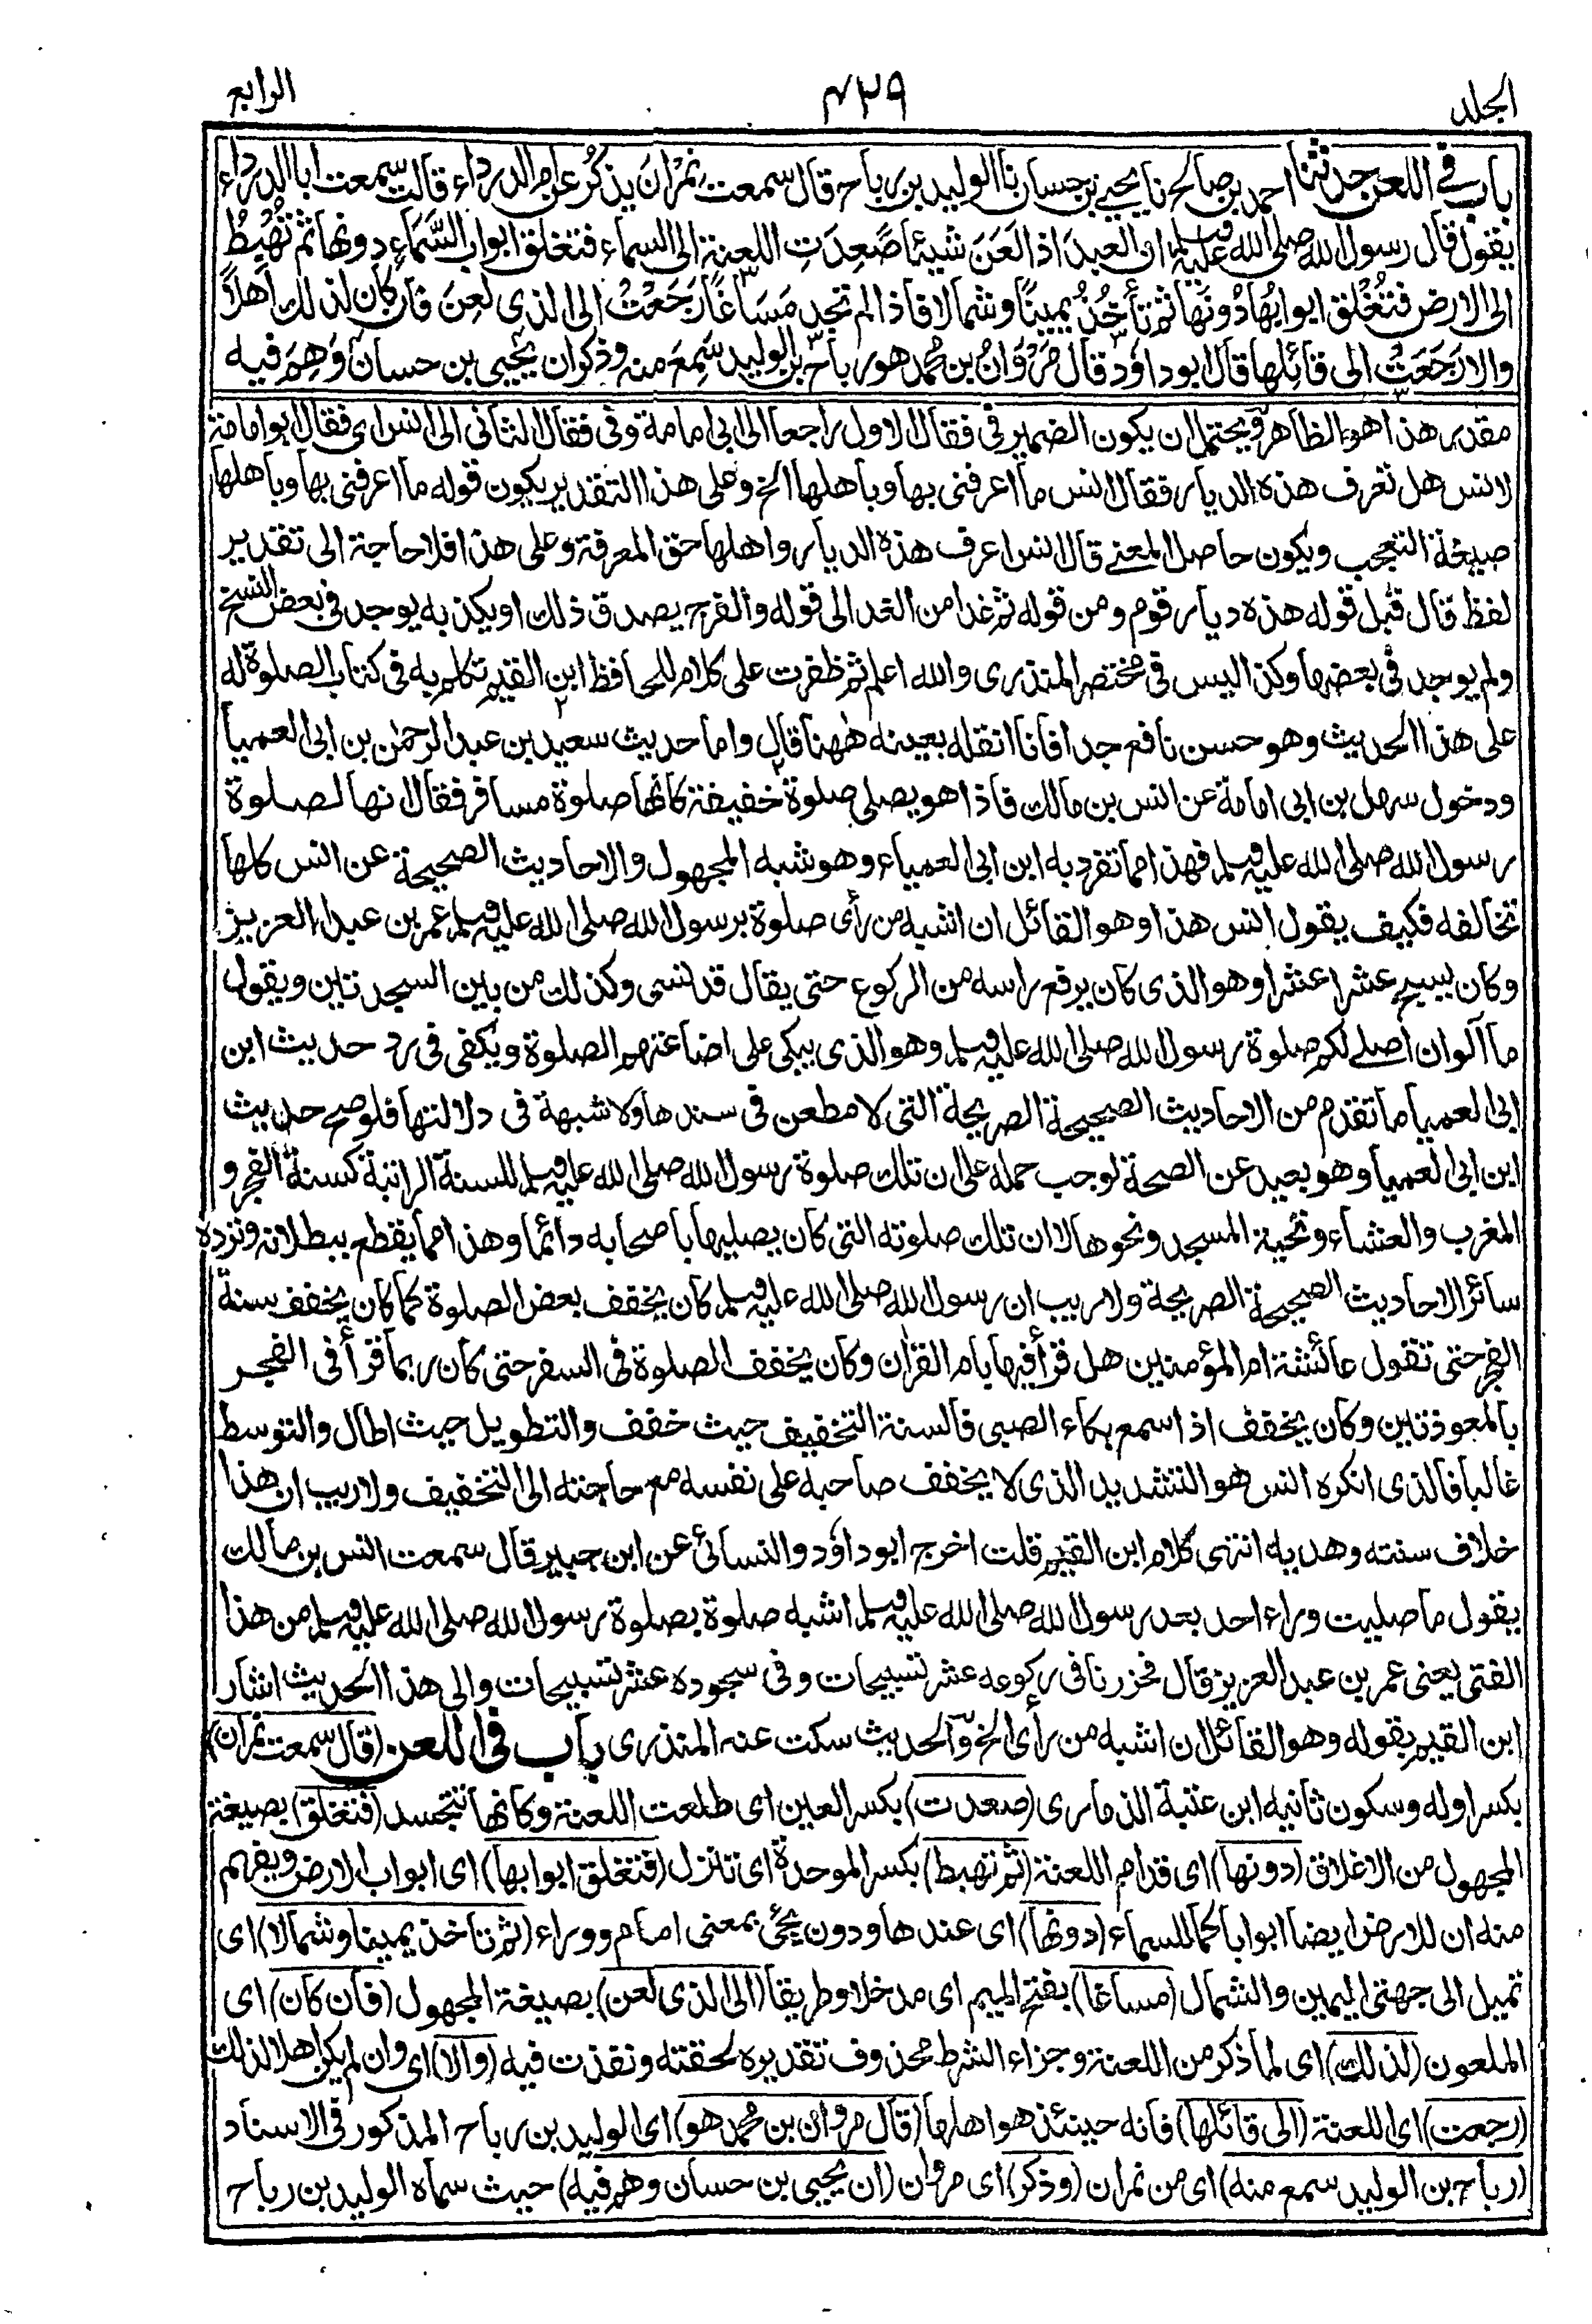 المجلد
٤٣٩
الرابع
باب في اللعن حدثنا احمد بن صالح نا يحيى بن حسان نا الوليد بن رباح قال سمعت نِمْرَانَ يذكُرُ عن ام الدرداء قالت سمعت ابا الدرداء
يقول قال رسول الله صلى الله عليه وسلم ان العبدَ اذا لَعَنَ شيئًا صَعِدَتِ اللعنة الى السماء فتغلق ابواب السَّمَاءِ دونها ثم تَهْبِطُ
الى الارض فتُغْلق ابوابُهَا دُونَهَا ثم تأخُذُ يمينًا وشمالا فاذا لم تجد مَسَاغًا رَجَعَتْ الى الذى لُعِنَ فان كان لذلك اَهلاً
والا رَجَعَتْ الى قائِلها قال ابو داوٗد قال مَرْوَانُ بن محمد هو رباح بن الوليد سَمِعَ منه وذكر ان يحيى بن حسان وَهِمَ فيه
مقدر هذا هو الظاهر ويحتمل ان يكون الضمير في فقال الاول راجعا الى ابى امامة وفى فقال الثانى الى انس اى فقال ابو امامة
لانس هل تعرف هذه الديار فقال انس ما اعرفنى بها وباهلها الخ وعلى هذا التقدير يكون قوله ما اعرفنى بها وباهلها
صيغة التعجب ويكون حاصل المعنى قال انس اعرف هذه الديار واهلها حق المعرفة وعلى هذا فلا حاجة الى تقدير
لفظ قال قبل قوله هذه ديار قوم ومن قوله ثم غدا من الغد الى قوله والفرج يصدق ذلك او يكذبه يوجد فى بعض النسخ
ولم يوجد فى بعضها وكذا ليس فى مختصر المنذرى والله اعلم ثم ظفرت على كلام للحافظ ابن القيم تكلم به فى كتاب الصلوة له
على هذا الحديث وهو حسن نافع جدا فانا انقله بعينه ههنا قال واما حديث سعيد بن عبد الرحمن بن ابى العميا
ودخول سهل بن ابى امامة عن انس بن مالك فاذا هو يصلى صلوة خفيفة كانها صلوة مسافر فقال انها لصلوة
رسول الله صلى الله عليه وسلم فهذا مما تفرد به ابن ابى العمياء وهو شبه المجهول والاحاديث الصحيحة عن انس كلها
تخالفه فكيف يقول انس هذا وهو القائل ان اشبه من رأى صلوة برسول الله صلى الله عليه وسلم عمر بن عبد العزيز
وكان يسبح عشرا عشرا وهو الذى كان يرفع راسه من الركوع حتى يقال قد نسى وكذلك من بين السجدتين ويقول
ما آلو ان اصلے لكم صلوة رسول الله صلى الله عليه وسلم وهو الذى يبكى على اضاعتهم الصلوة ويكفى فى رد حديث ابن
ابى العميا ما تقدم من الاحاديث الصحيحة الصريحة التى لا مطعن فى سندها ولا شبهة فى دلالتها فلو صح حديث
ابن ابى العميا وهو بعيد عن الصحة لوجب حمله على ان تلك صلوة رسول الله صلى الله عليه وسلم للسنة الراتبة كسنة الفجر و
المغرب والعشاء وتحية المسجد ونحوها لا ان تلك صلوته التى كان يصليها باصحابه دائما وهذا مما يقطع ببطلانه وترده
سائر الاحاديث الصحيحة الصريحة ولا ريب ان رسول الله صلى الله عليه وسلم كان يخفف بعض الصلوة كما كان يخفف سنة
الفجر حتى تقول عائشة ام المؤمنين هل قرأ فيها بام القران وكان يخفف الصلوة فى السفر حتى كان ربما قرأ فى الفجر
بالمعوذتين وكان يخفف اذا سمع بكاء الصبى فالسنة التخفيف حيث خفف والتطويل حيث اطال والتوسط
غالبا فالذى انكره انس هو التشديد الذى لا يخفف صاحبه على نفسه مع حاجته الى التخفيف ولا ريب ان هذا
خلاف سنته وهديه انتهى كلام ابن القيم قلت اخرج ابو داوٗد والنسائى عن ابن جبير قال سمعت انس بن مالك
يقول ما صليت وراء احد بعد رسول الله صلى الله عليه وسلم اشبه صلوة بصلوة رسول الله صلى الله عليه وسلم من هذا
الفتى يعنى عمر بن عبد العزيز قال فحزرنا فى ركوعه عشر تسبيحات وفى سجوده عشر تسبيحات والى هذا الحديث اشار
ابن القيم بقوله وهو القائل ان اشبه من رأى الخ والحديث سكت عنه المنذرى باب فى اللعن (قال سمعت نمران)
بكسر اوله وسكون ثانيه ابن عتبة الذمارى (صعدت) بكسر العين اى طلعت اللعنة وكانها تتجسد (فتغلق) بصيغة
المجهول من الاغلاق (دونها) اى قدام اللعنة (ثم تهبط) بكسر الموحدة اى تنزل (فتغلق ابوابها) اى ابواب الارض ويفهم
منه ان للارض ايضا ابوابا كما للسماء (دونها) اى عندها ودون يجئ بمعنى امام ووراء (ثم تاخذ يمينا وشمالا) اى
تميل الى جهتى اليمين والشمال (مساغا) بفتح الميم اى مدخلا وطريقا (الى الذى لعن) بصيغة المجهول (فان كان) اى
الملعون (لذلك) اى لما ذكر من اللعنة وجزاء الشرط محذوف تقديره لحقته ونفذت فيه (والا) اى وان لم يكن اهلا لذلك
(رجعت) اى اللعنة (الى قائلها) فانه حينئذ هو اهلها (قال مروان بن محمد هو) اى الوليد بن رباح المذكور فى الاسناد
(رباح بن الوليد سمع منه) اى من نمران (وذكر) اى مروان (ان يحيى بن حسان وهم فيه) حيث سماه الوليد بن رباح